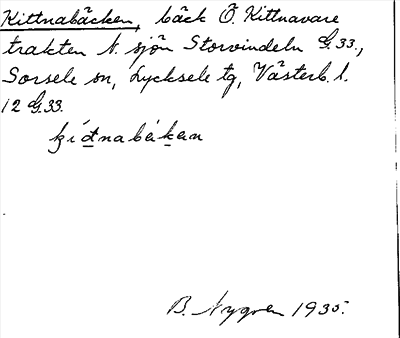 Kittnabäcken, bäck Ö. Kittnavare
trakten N. sjön Storvindeln G.33.,
Sorsele sn, Lycksele tg, Västerb. l.
12 G.33.
B. Nygren 1935.